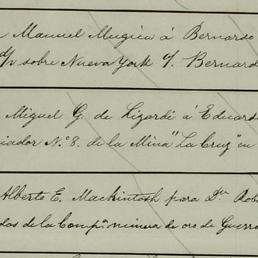 Manuel Mugica á Bernardo
d/v sobre Nueva York f/. Bernard
Miguel G. de Lizardi á Eduardo
iador N.º 8. de la Mina "La Cruz" en
Alberto E. Mackintosh para D.n Rob
das de la Comp.ª minera de oro de Guerre